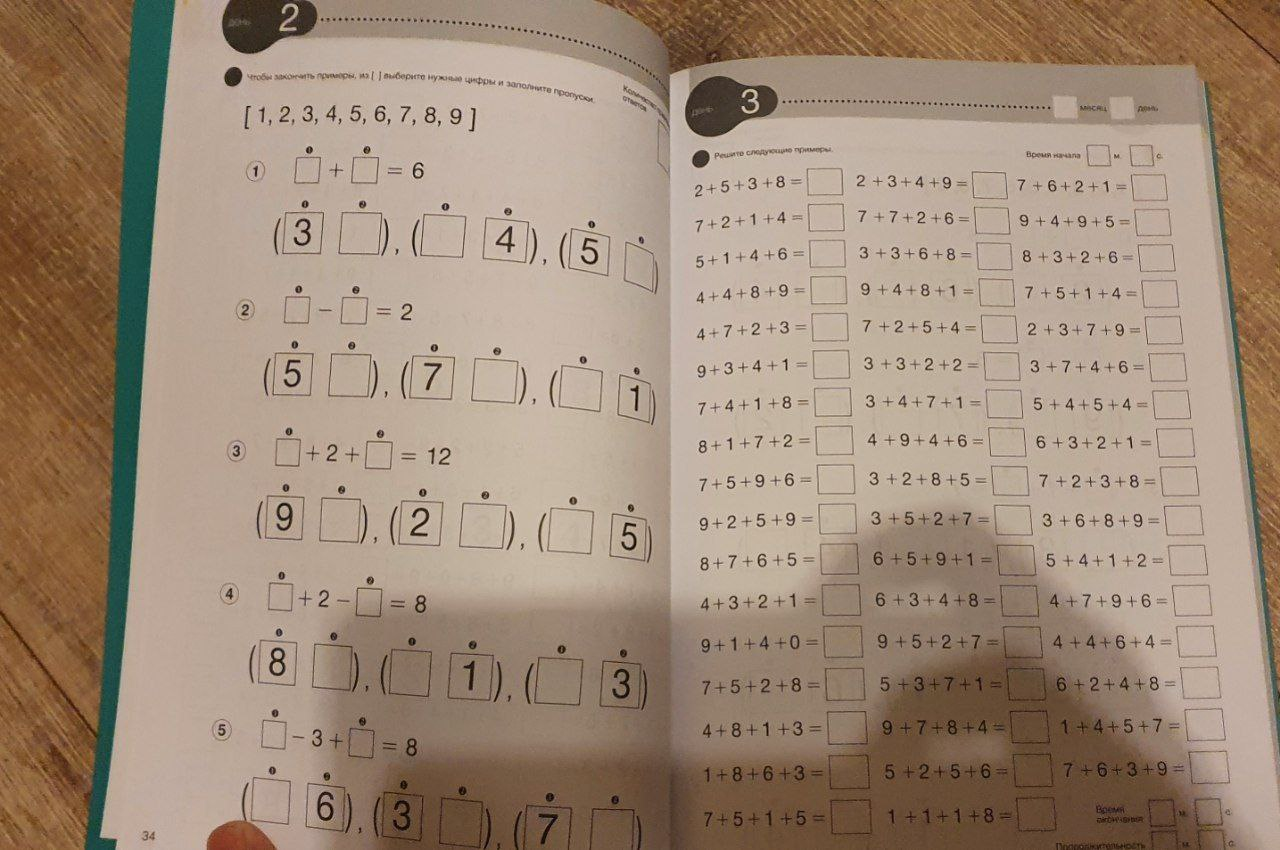 день 2
Чтобы закончить примеры, из [ ] выберите нужные цифры и заполните пропуски.
Количество
ответов
[ 1, 2, 3, 4, 5, 6, 7, 8, 9 ]
① ❶ □ + ❷ □ = 6
(❶ 3 ❷ □), (□ ❷ 4), (❶ 5 ❷ □)
② ❶ □ − ❷ □ = 2
(❶ 5 ❷ □), (❶ 7 ❷ □), (❶ □ ❷ 1)
③ ❶ □ + 2 + ❷ □ = 12
(❶ 9 ❷ □), (❶ 2 ❷ □), (❶ □ ❷ 5)
④ ❶ □ + 2 − ❷ □ = 8
(❶ 8 ❷ □), (❶ □ ❷ 1), (❶ □ ❷ 3)
⑤ ❶ □ − 3 + ❷ □ = 8
(❶ □ ❷ 6), (❶ 3 ❷ □), (❶ 7 ❷ □)
34
день 3
месяц день
Решите следующие примеры.
Время начала м. с.
2+5+3+8= 2+3+4+9= 7+6+2+1=
7+2+1+4= 7+7+2+6= 9+4+9+5=
5+1+4+6= 3+3+6+8= 8+3+2+6=
4+4+8+9= 9+4+8+1= 7+5+1+4=
4+7+2+3= 7+2+5+4= 2+3+7+9=
9+3+4+1= 3+3+2+2= 3+7+4+6=
7+4+1+8= 3+4+7+1= 5+4+5+4=
8+1+7+2= 4+9+4+6= 6+3+2+1=
7+5+9+6= 3+2+8+5= 7+2+3+8=
9+2+5+9= 3+5+2+7= 3+6+8+9=
8+7+6+5= 6+5+9+1= 5+4+1+2=
4+3+2+1= 6+3+4+8= 4+7+9+6=
9+1+4+0= 9+5+2+7= 4+4+6+4=
7+5+2+8= 5+3+7+1= 6+2+4+8=
4+8+1+3= 9+7+8+4= 1+4+5+7=
1+8+6+3= 5+2+5+6= 7+6+3+9=
7+5+1+5= 1+1+1+8=
Время
окончания м. с.
Продолжительность м. с.